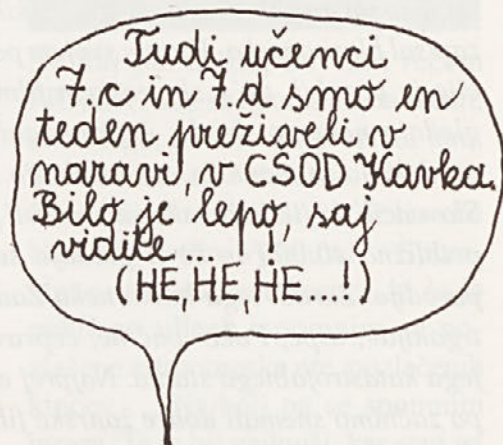 Tudi učenci
7. c in 7. d smo en
teden preživeli v
naravi, v CŠOD Kavka.
Bilo je lepo, saj
vidite...!!!
(HE, HE, HE...!)